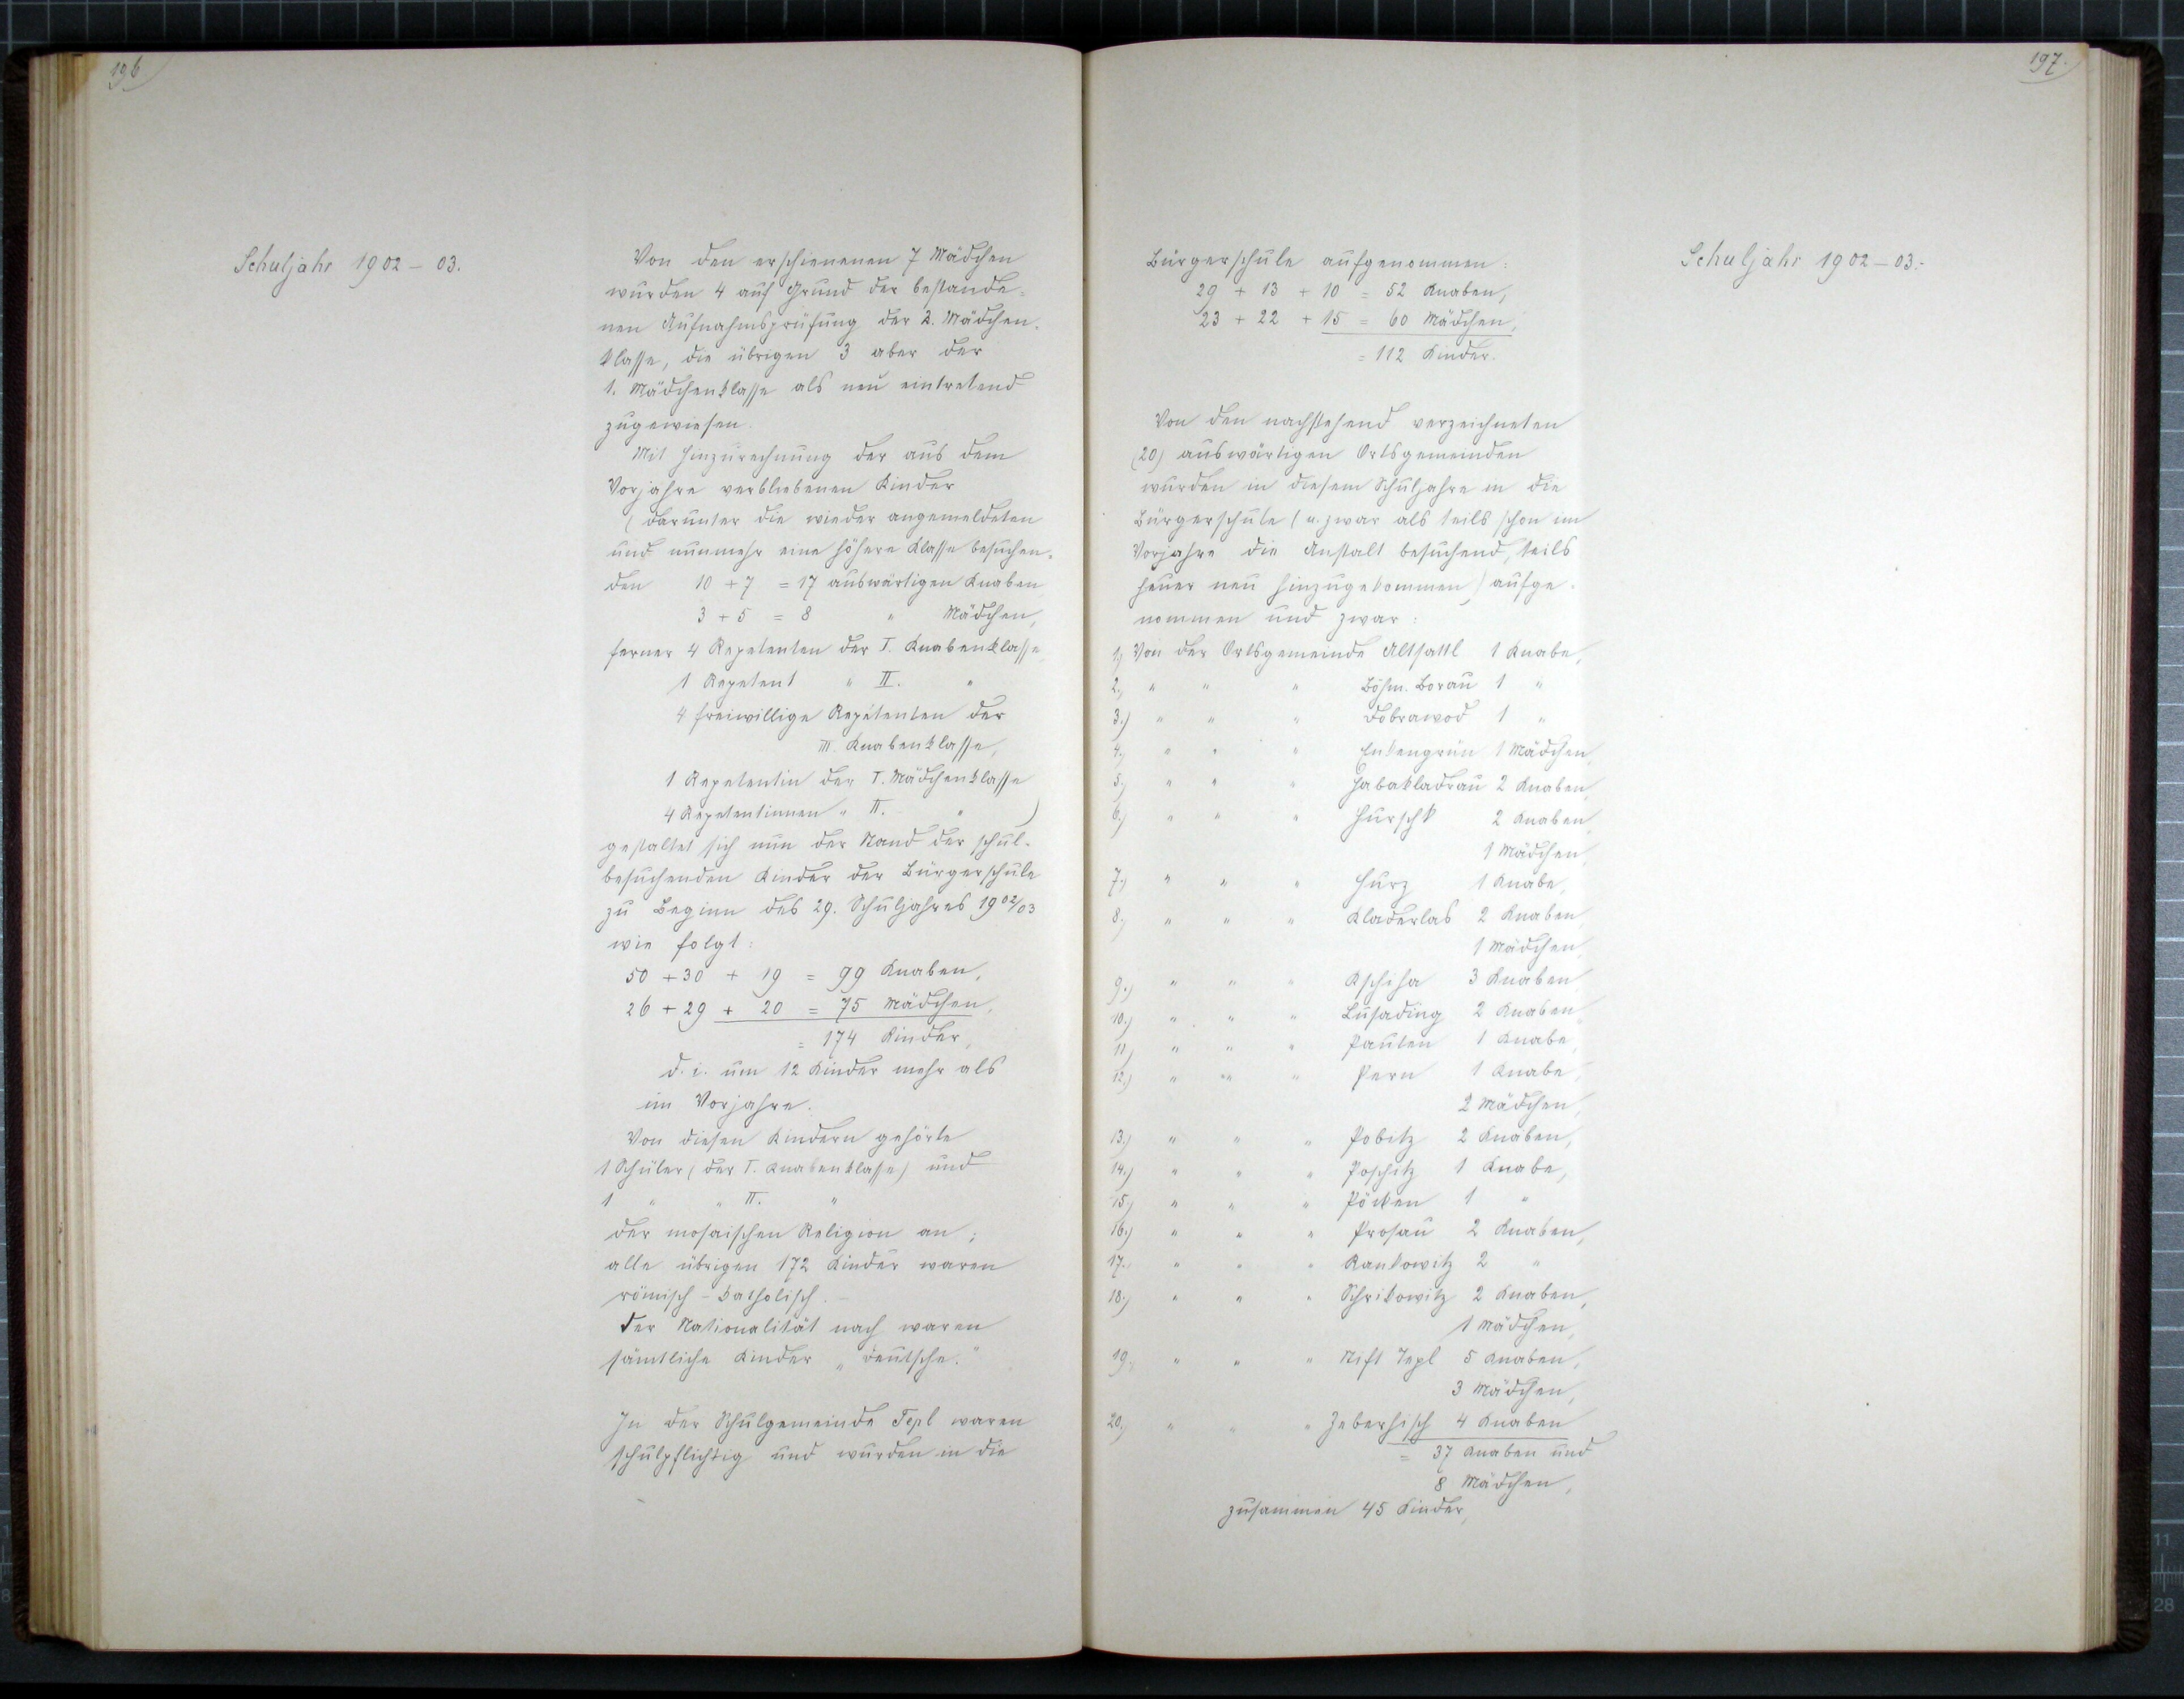 196.
Schuljahr 1902 – 03.
Von den erschienenen 7 Mädchen
wurden 4 auf Grund der bestande=
nen Aufnahmsprüfung der 2. Mädchen=
klasse, die übrigen 3 aber der
1. Mädchenklasse als neu eintretend
zugewiesen.
Mit Hinzurechnung der aus dem
Vorjahre verbliebenen Kinder
(darunter die wieder angemeldeten
und nunmehr eine höhere Klasse besuchen=
den 10 + 7 = 17 auswärtigen Knaben
3 + 5 = 8 " Mädchen,
ferner 4 Repetenten der I. Knabenklasse,
1 Repetent " II. "
4 freiwillige Repetenten der
III. Knabenklasse,
1 Repetentin der I. Mädchenklasse
4 Repetentinnen " II. " )
gestaltet sich nun der Stand der schul=
besuchenden Kinder der Bürgerschule
zu Beginn des 29. Schuljahres 1902/03
wie folgt:
50 + 30 + 19 = 99 Knaben,
26 + 29 + 20 = 75 Mädchen,
= 174 Kinder,
d. i. um 12 Kinder mehr als
im Vorjahre.
Von diesen Kindern gehörte
1 Schüler (der I. Knabenklasse) und
1 " " II. "
der mosaischen Religion an;
alle übrigen 172 Kinder waren
römisch-katholisch. –
Der Nationalität nach waren
sämtliche Kinder „Deutsche."
In der Schulgemeinde Tepl waren
schulpflichtig und wurden in die
197.
Schuljahr 1902 – 03.-
Bürgerschule aufgenommen:
29 + 13 + 10 = 52 Knaben,
23 + 22 + 15 = 60 Mädchen,
= 112 Kinder.
Von den nachstehend verzeichneten
(20) auswärtigen Ortsgemeinden
wurden in diesem Schuljahre in die
Bürgerschule (u. zwar als teils schon im
Vorjahre die Anstalt besuchend, teils
heuer neu hinzugekommen) aufge=
nommen und zwar:
1.) Von der Ortsgemeinde Altsattl 1 Knabe,
2.) " " " Böhm. Borau 1 "
3.) " " " Dobrawod 1 "
4.) " " " Enkengrün 1 Mädchen,
5.) " " " Habakladrau 2 Knaben,
6.) " " " Hurschk 2 Knaben,
1 Mädchen,
7.) " " " Hurz 1 Knabe,
8.) " " " Kladerlas 2 Knaben,
1 Mädchen,
9.) " " " Kschiha 3 Knaben
10.) " " " Lusading 2 Knaben
11.) " " " Pauten 1 Knabe,
12.) " " " Pern 1 Knabe,
2 Mädchen,
13.) " " " Pobitz 2 Knaben,
14.) " " " Poschitz 1 Knabe,
15.) " " " Pöcken 1 "
16.) " " " Prosau 2 Knaben,
17.) " " " Rankowitz 2 "
18.) " " " Schrikowitz 2 Knaben,
1 Mädchen,
19.) " " " Stift Tepl 5 Knaben,
3 Mädchen,
20.) " " " Zeberhisch 4 Knaben
= 37 Knaben und
8 Mädchen,
zusammen 45 Kinder,